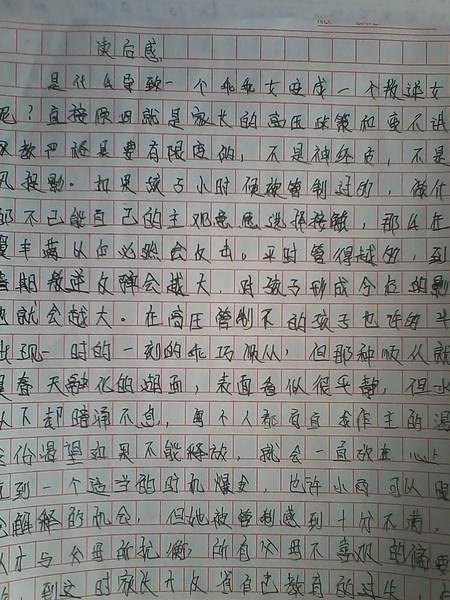 读后感
是什么导致一个乖乖女变成一个叛逆女
呢？直接原因就是家长的高压政策和毫不讲
教也将是要有限度的，不是神经质，不是
风捉影。如果孩子小时便被管制过的，做什
都不已能自己的主观意愿选择接触，那么在
丰满以后必然会反击。平时管得越的，到
春期叛逆反弹会越大，对孩子形成今后的影
就会越大。在高压管制下的孩子也许的
出现一时的一刻的乖巧顺从，但那种顺从就
是春天融化的湖面，表面看似很平静，但水
以下却暗涌不息，每个人都有自己作主的渴
渴望如果不能释放，就会一直放在心上
到一个适当的时机爆发。也许小雨可以跟
解释的机会，但她被管制感到十分不满，
以才与父母所抗衡，所有父母不喜欢的偏要
，到这时家长才反省自己教育的过失，